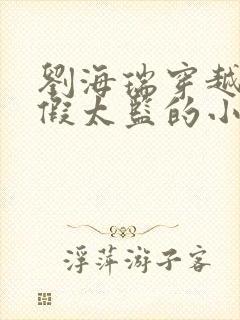 劉海瑞穿越
假太監的小
浮萍游子客